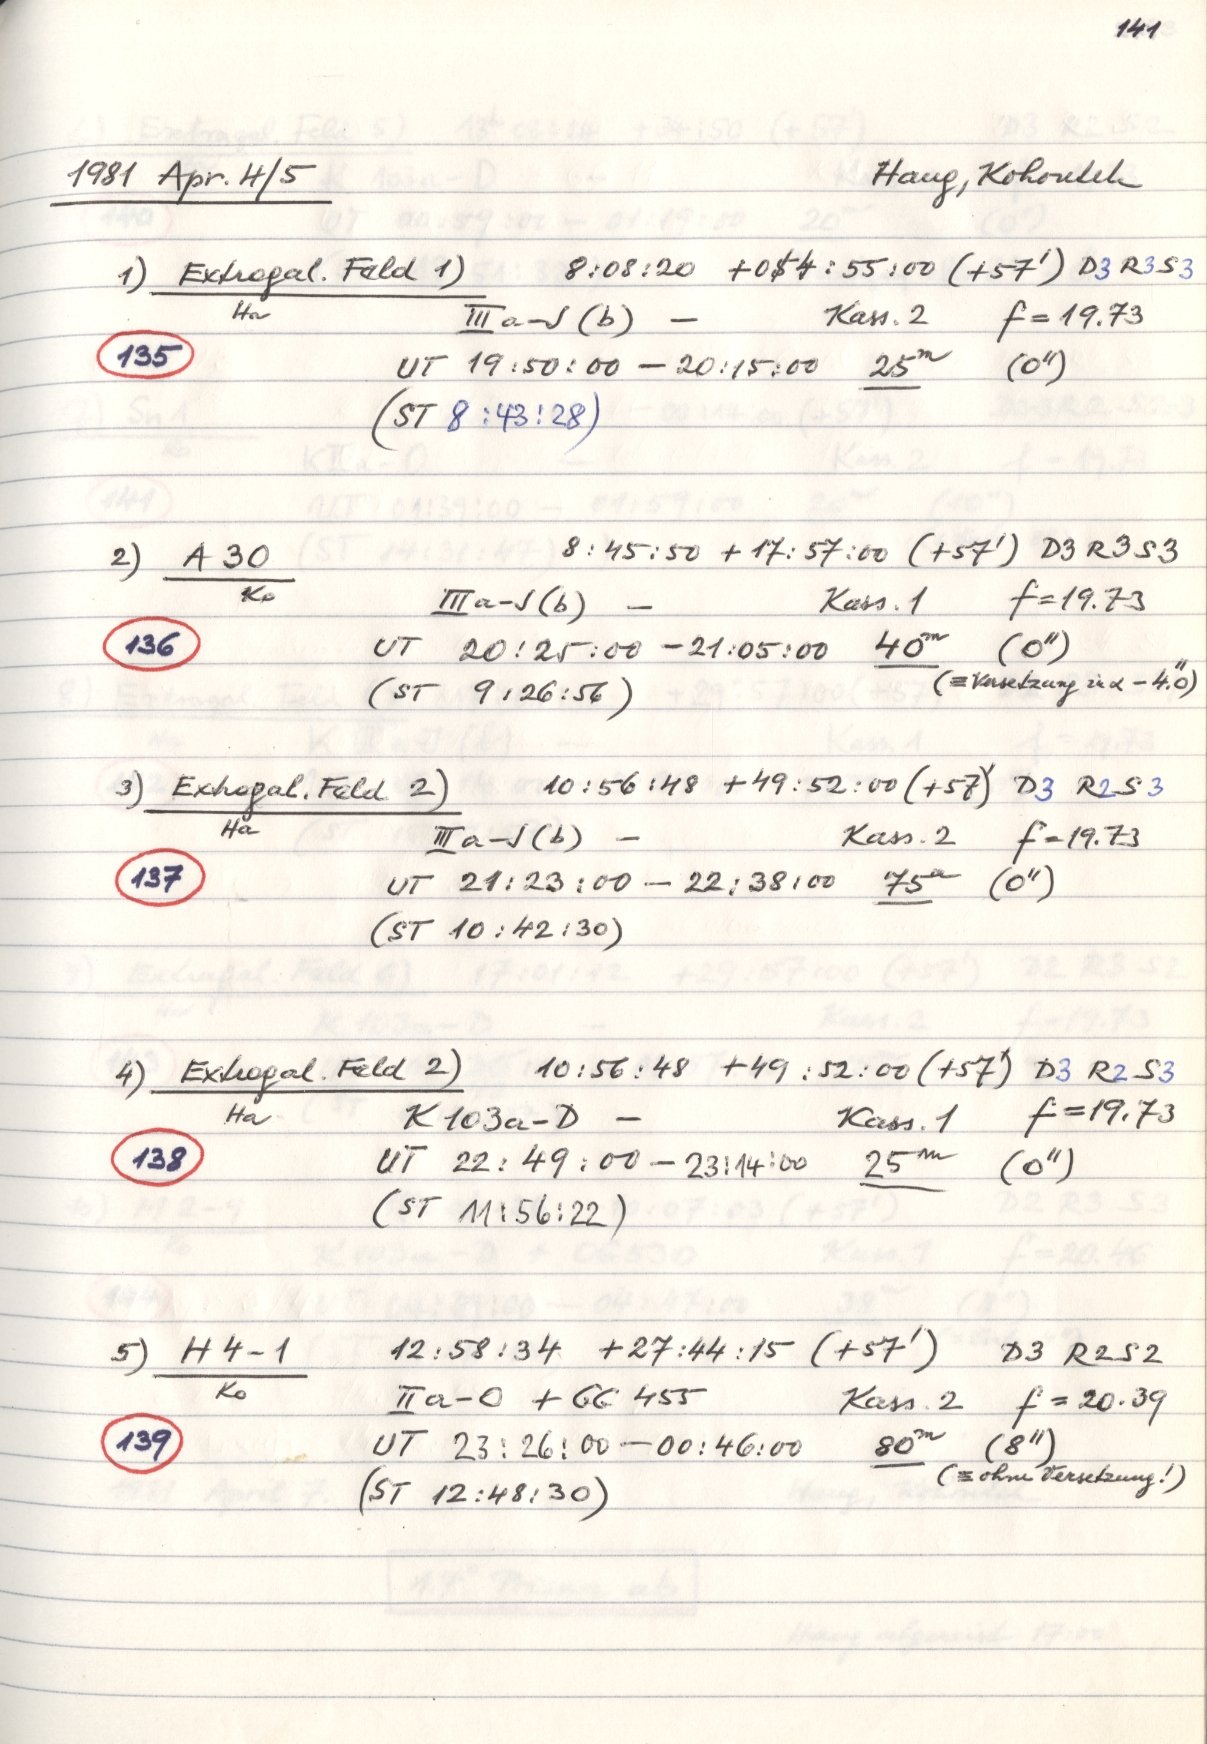 141
1981 Apr. 4/5 Haug, Kohoutek
1) Extragal. Feld 1) 8:08:20 +04:55:00 (+57') D3 R3 S3
Ha IIIa-J (b) — Kass. 2 f = 19.73
135 UT 19:50:00 — 20:15:00 25m (0")
(ST 8:43:28)
2) A 30 8:45:50 +17:57:00 (+57') D3 R3 S3
Ko IIIa-J (b) — Kass. 1 f = 19.73
136 UT 20:25:00 — 21:05:00 40m (0")
(ST 9:26:56) (≡ Versetzung in α — 4".0)
3) Extragal. Feld 2) 10:56:48 +49:52:00 (+57') D3 R2 S3
Ha IIIa-J (b) — Kass. 2 f = 19.73
137 UT 21:23:00 — 22:38:00 75m (0")
(ST 10:42:30)
4) Extragal. Feld 2) 10:56:48 +49:52:00 (+57') D3 R2 S3
Ha K 103a-D — Kass. 1 f = 19.73
138 UT 22:49:00 — 23:14:00 25m (0")
(ST 11:56:22)
5) H 4-1 12:58:34 +27:44:15 (+57') D3 R2 S2
Ko IIa-O + GG 455 Kass. 2 f = 20.39
139 UT 23:26:00 — 00:46:00 80m (8")
(ST 12:48:30) (≡ ohne Versetzung!)